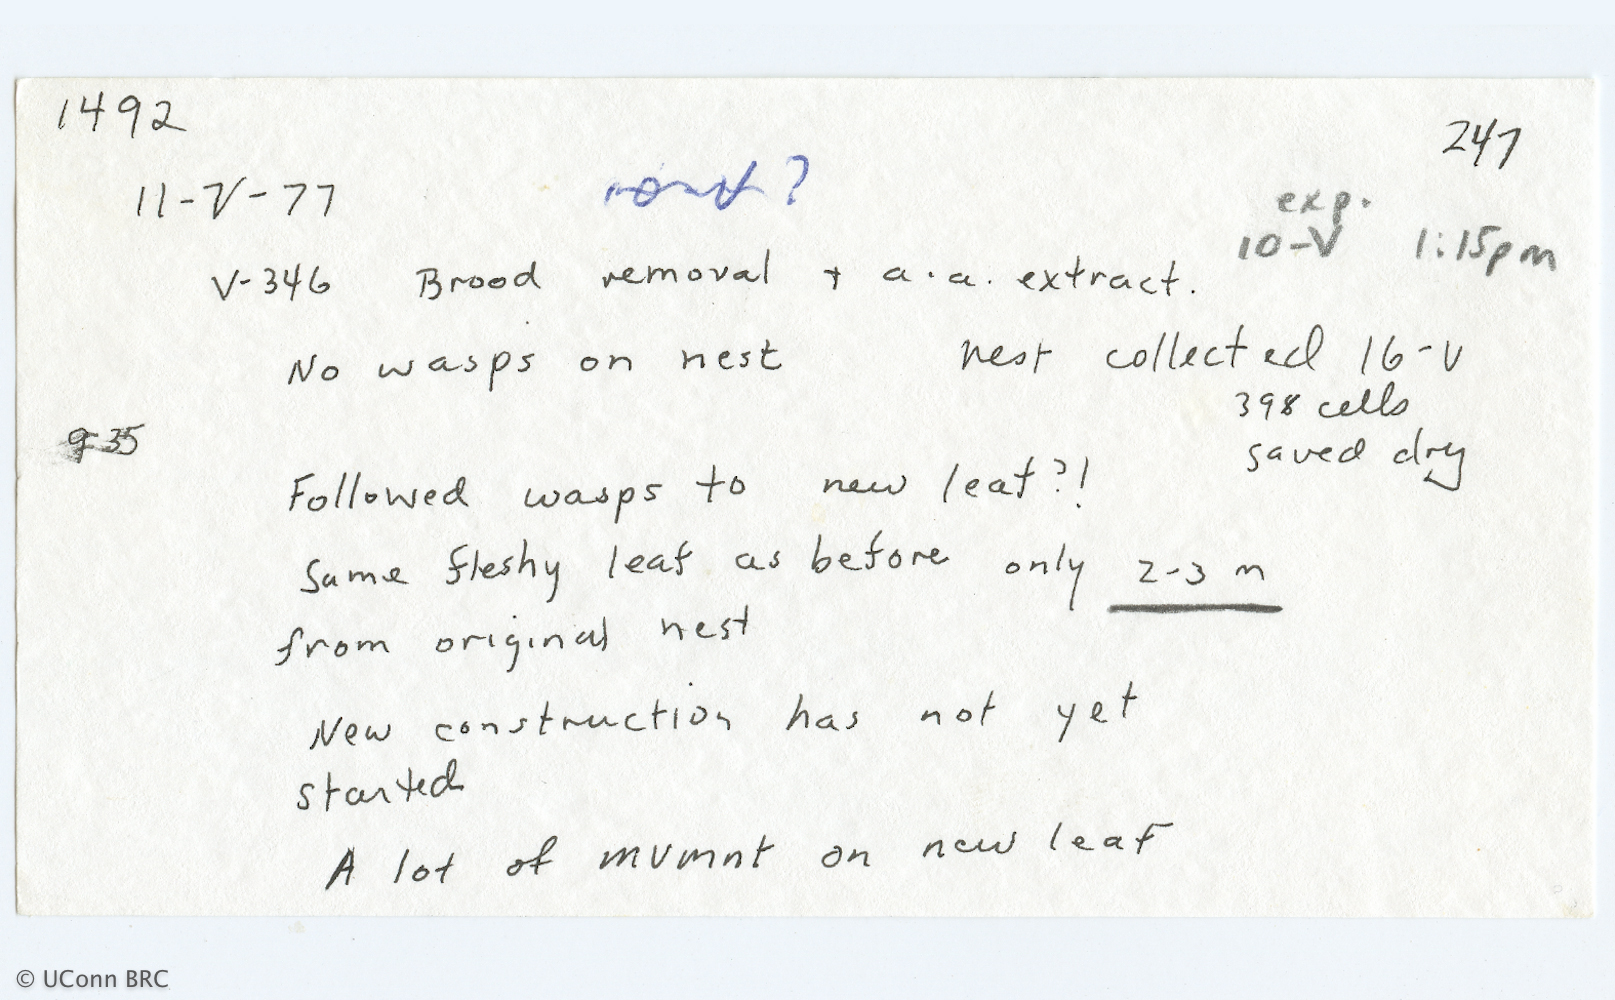 1492
247
11-V-77
?
exp.
10-V 1:15pm
V-346 Brood removal + a.a. extract.
No wasps on nest
nest collected 16-V
398 cells
saved dry
9 35
Followed wasps to new leaf?!
Same fleshy leaf as before only 2-3 m
from original nest
New construction has not yet
started
A lot of mvmnt on new leaf
© UConn BRC